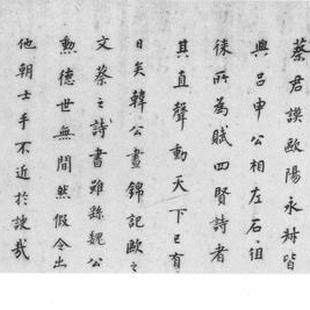 蔡君謨歐陽永叔皆
與呂申公相左石徂
徠所為賦四賢詩者
其直聲動天下已有
日矣韓公晝錦記歐之
文蔡之詩書雖繇魏公
勳德世無間然假令出
他朝士手不近於諛哉